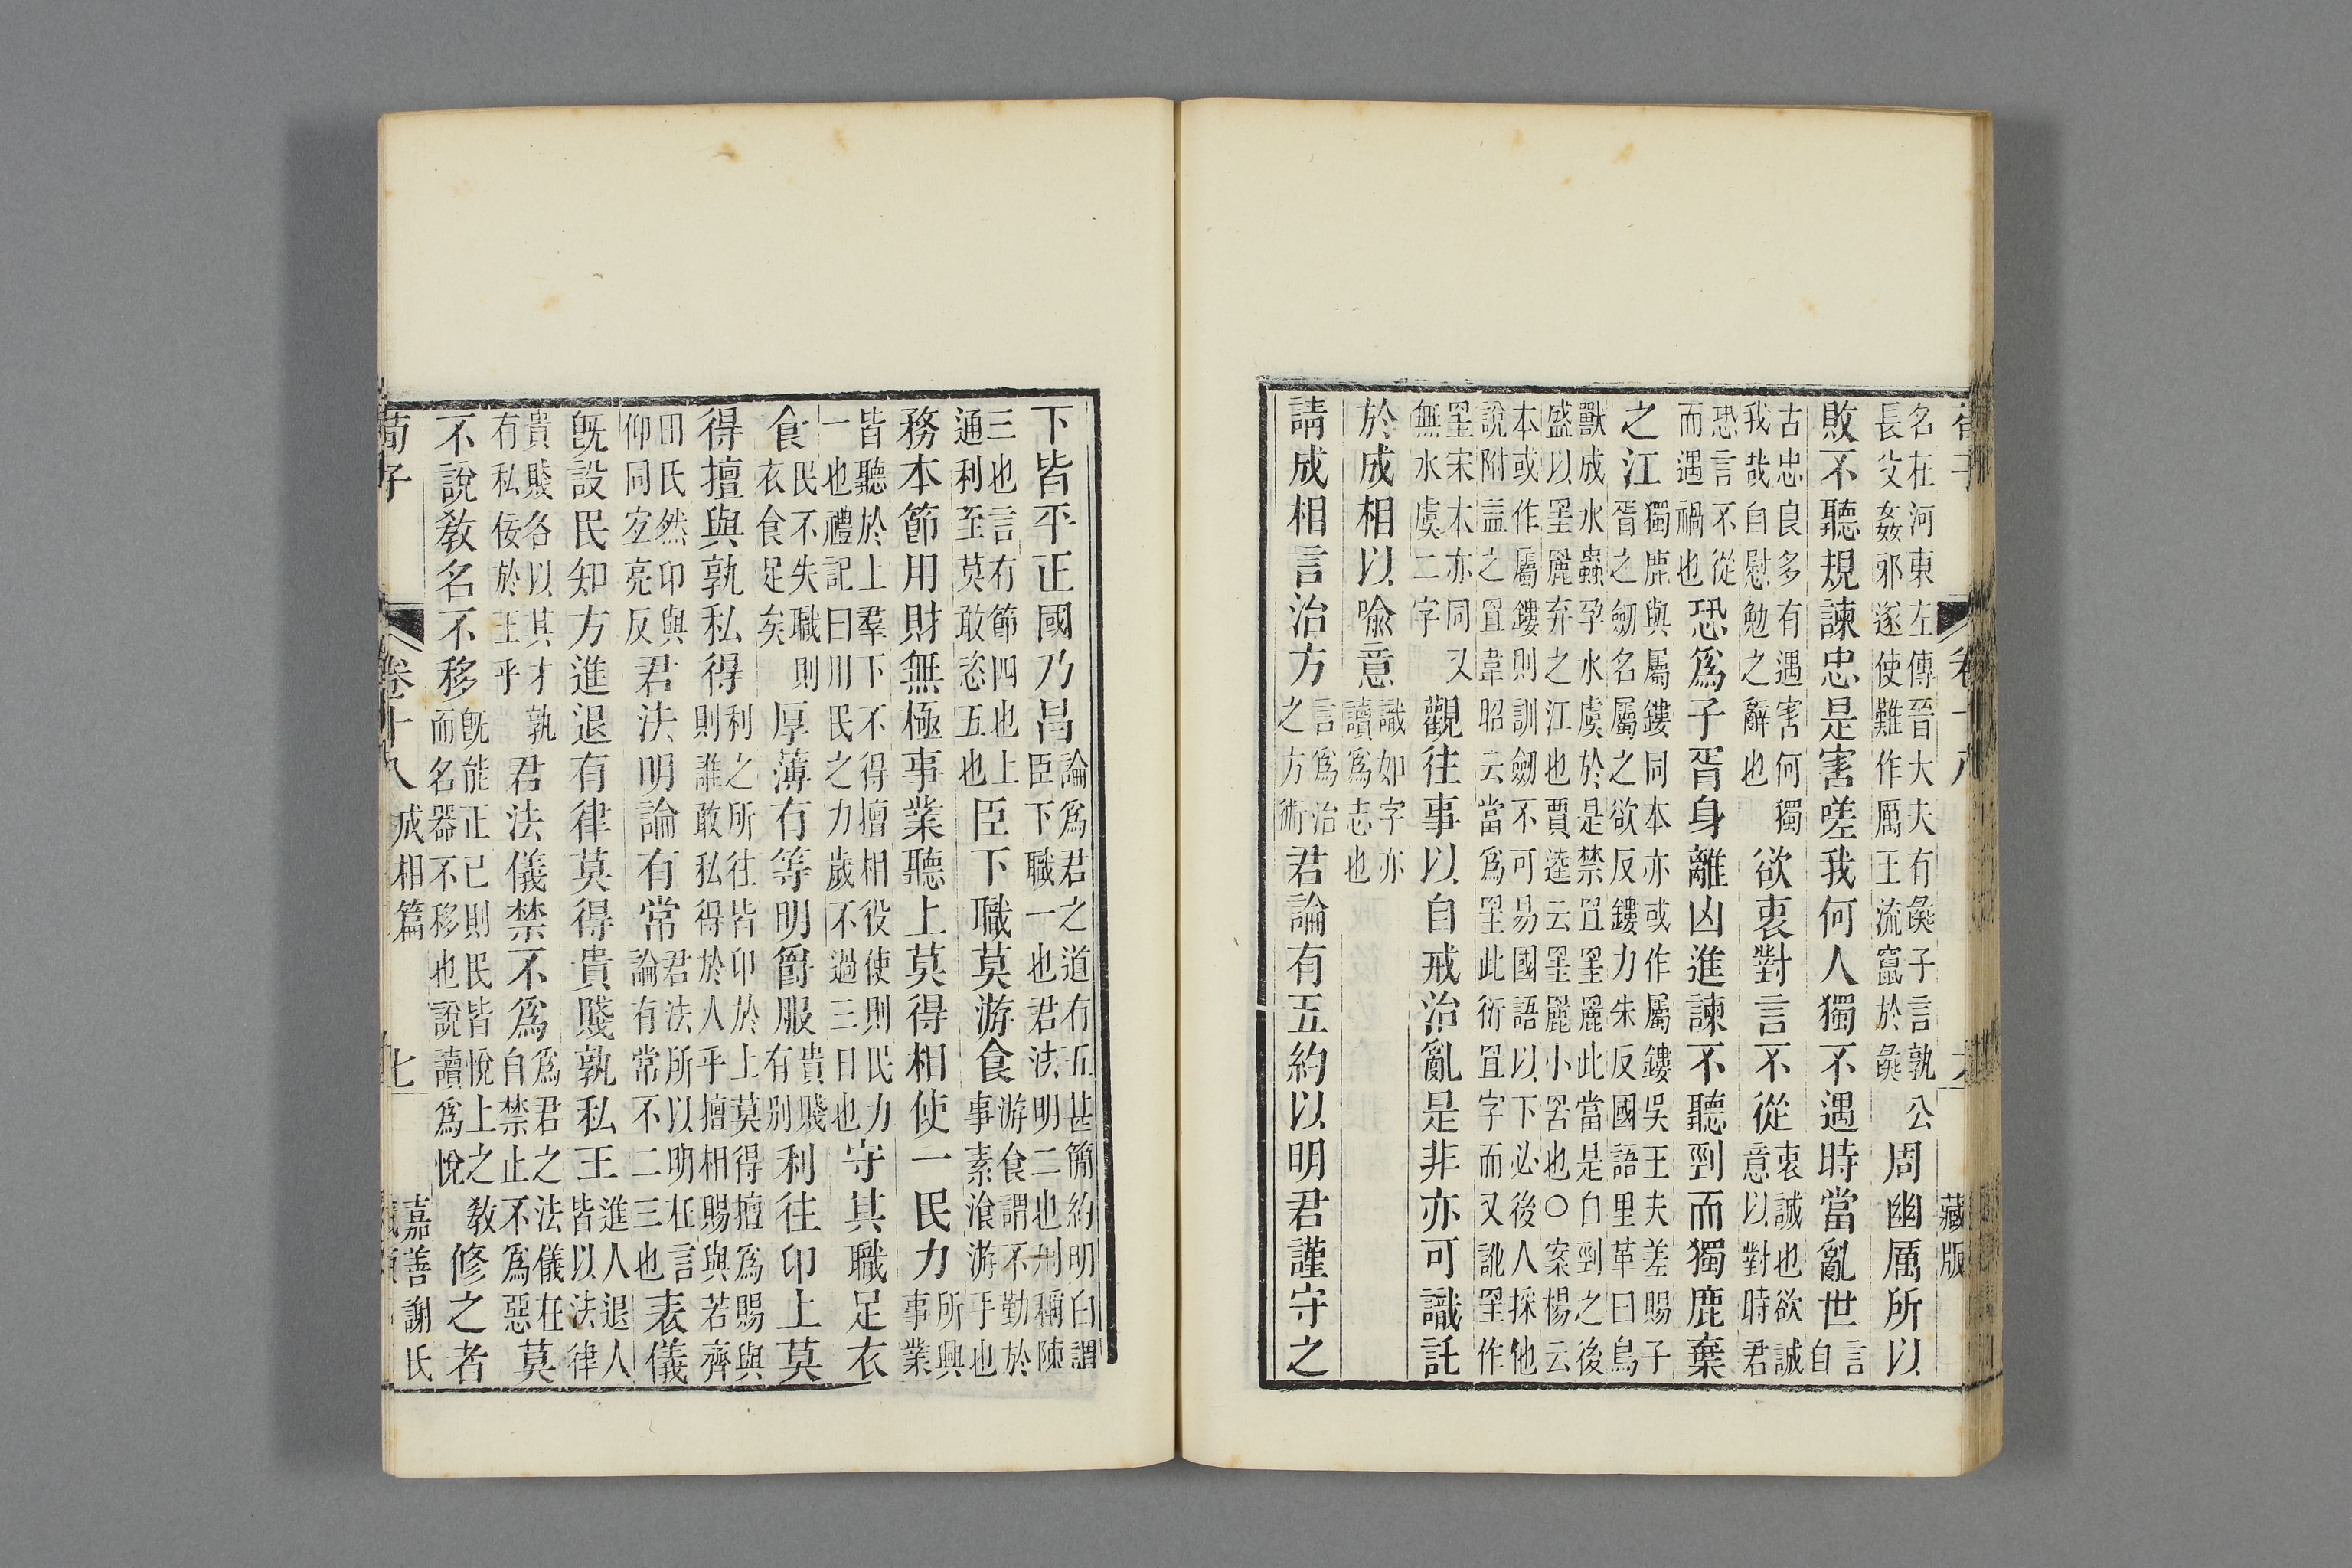 荀子 卷十八 六 藏版
名在河東左傳晉大夫有彘子言孰公
長父姦邪遂使難作厲王流竄於彘
周幽厲所以
敗不聽規諫忠是害嗟我何人獨不遇時當亂世
言
自
古忠良多有遇害何獨
我哉自慰勉之辭也
欲衷對言不從
衷誠也欲誠
意以對時君
恐言不從
而遇禍也
恐爲子胥身離凶進諫不聽剄而獨鹿棄
之江
獨鹿與屬鏤同本亦或作屬鏤吳王夫差賜子
胥之劒名屬之欲反鏤力朱反國語里革曰鳥
獸成水蟲孕水虞於是禁罝罜麗此當是自剄之後
盛以罜麗弃之江也賈逵云罜麗小罟也○案楊云
本或作屬鏤則訓劒不可易國語以下必後人採他
說附益之罝韋昭云當爲罜此術罝字而又訛罜作
罜宋本亦同又
無水虞二字
觀往事以自戒治亂是非亦可識託
於成相以喻意
識如字亦
讀爲志也
請成相言治方
言爲治
之方術
君論有五約以明君謹守之
下皆平正國乃昌
論爲君之道有五甚簡約明白謂
臣下職一也君法明二也刑稱陳
三也言有節四也上
通利至莫敢恣五也
臣下職莫游食
游食謂不勤於
事素飡游手也
務本節用財無極事業聽上莫得相使一民力
所興
事業
皆聽於上羣下不得擅相役使則民力
一也禮記曰用民之力歲不過三日也
守其職足衣
食
民不失職則
衣食足矣
厚薄有等明爵服
貴賤
有別
利往卬上莫
得擅與孰私得
利之所往皆卬於上莫得擅爲賜與
則誰敢私得於人乎擅相賜與若齊
田氏然卬與
仰同宜亮反
君法明論有常
君法所以明在言
論有常不二三也
表儀
旣設民知方進退有律莫得貴賤孰私王
進人退人
皆以法律
貴賤各以其才孰
有私佞於王乎
君法儀禁不爲
爲君之法儀在
自禁止不爲惡
莫
不說教名不移
旣能正已則民皆悅上之敎
而名器不移也說讀爲悅
修之者
荀子 卷十八 成相篇 七 嘉善謝氏